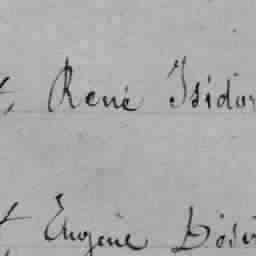 René Isidor
Eugène Désir